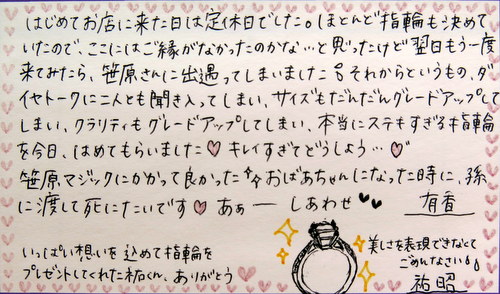 はじめてお店に来た日は定休日でした。ほとんど指輪も決めて
いたので、ここにはご縁がなかったのかな…と思ったけど翌日もう一度
来てみたら、笹原さんに出逢ってしまいました!!それからというもの、ダ
イヤトークに二人とも聞き入ってしまい、サイズもだんだんグレードアップして
しまい、クラリティもグレードアップしてしまい、本当にステキすぎる指輪
を今日、はめてもらいました♥キレイすぎてどうしよう…♥
笹原マジックにかかって良かったです。おばあちゃんになった時に、孫
に渡して死にたいです♥あぁーしあわせ♥♥
有香
いっぱい想いを込めて指輪を
プレゼントしてくれた祐くん、ありがとう
美しさを表現できなくて
ごめんなさい!!
祐昭